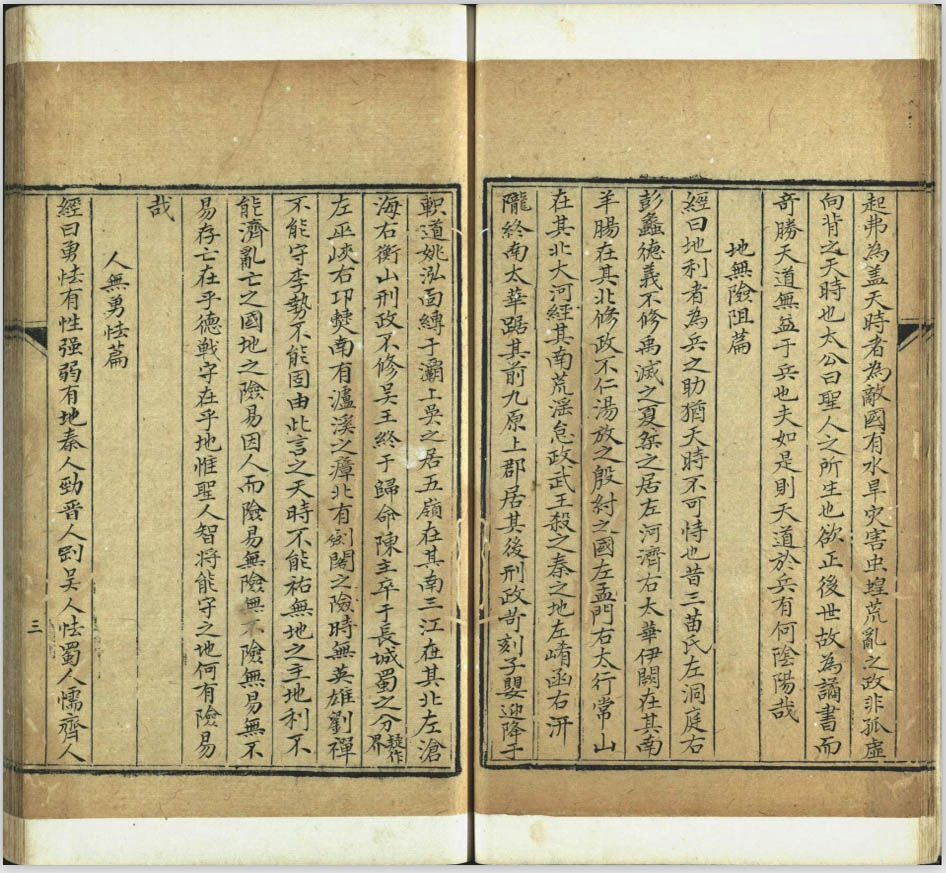 起弗為盖天時者為敵國有水旱灾害虫蝗荒亂之政非孤虛
向背之天時也太公曰聖人之所生也欲正後世故為譎書而
奇勝天道無益于兵也夫如是則天道於兵有何陰陽哉
地無險阻篇
經曰地利者為兵之助猶天時不可恃也昔三苗氏左洞庭右
彭蠡德義不修禹滅之夏桀之居左河濟右太華伊闕在其南
羊腸在其北修政不仁湯放之殷紂之國左孟門右太行常山
在其北大河經其南荒滛怠政武王殺之秦之地左崤函右汧
隴終南太華踞其前九原上郡居其後刑政苛刻子嬰迎降于
軹道姚泓面縛于灞上吳之居五嶺在其南三江在其北左滄
海右衡山刑政不修吳王終于歸命陳主卒于長城蜀之分疑作界
左巫峽右邛僰南有瀘溪之瘴北有劍閣之險時無英雄劉禪
不能守李勢不能固由此言之天時不能祐無地之主地利不
能濟亂亡之國地之險易因人而險易無險無不險無易無不
易存亡在乎德戰守在乎地惟聖人智将能守之地何有險易
哉
人無勇怯篇
經曰勇怯有性强弱有地秦人勁晋人剛吳人怯蜀人懦齊人
三